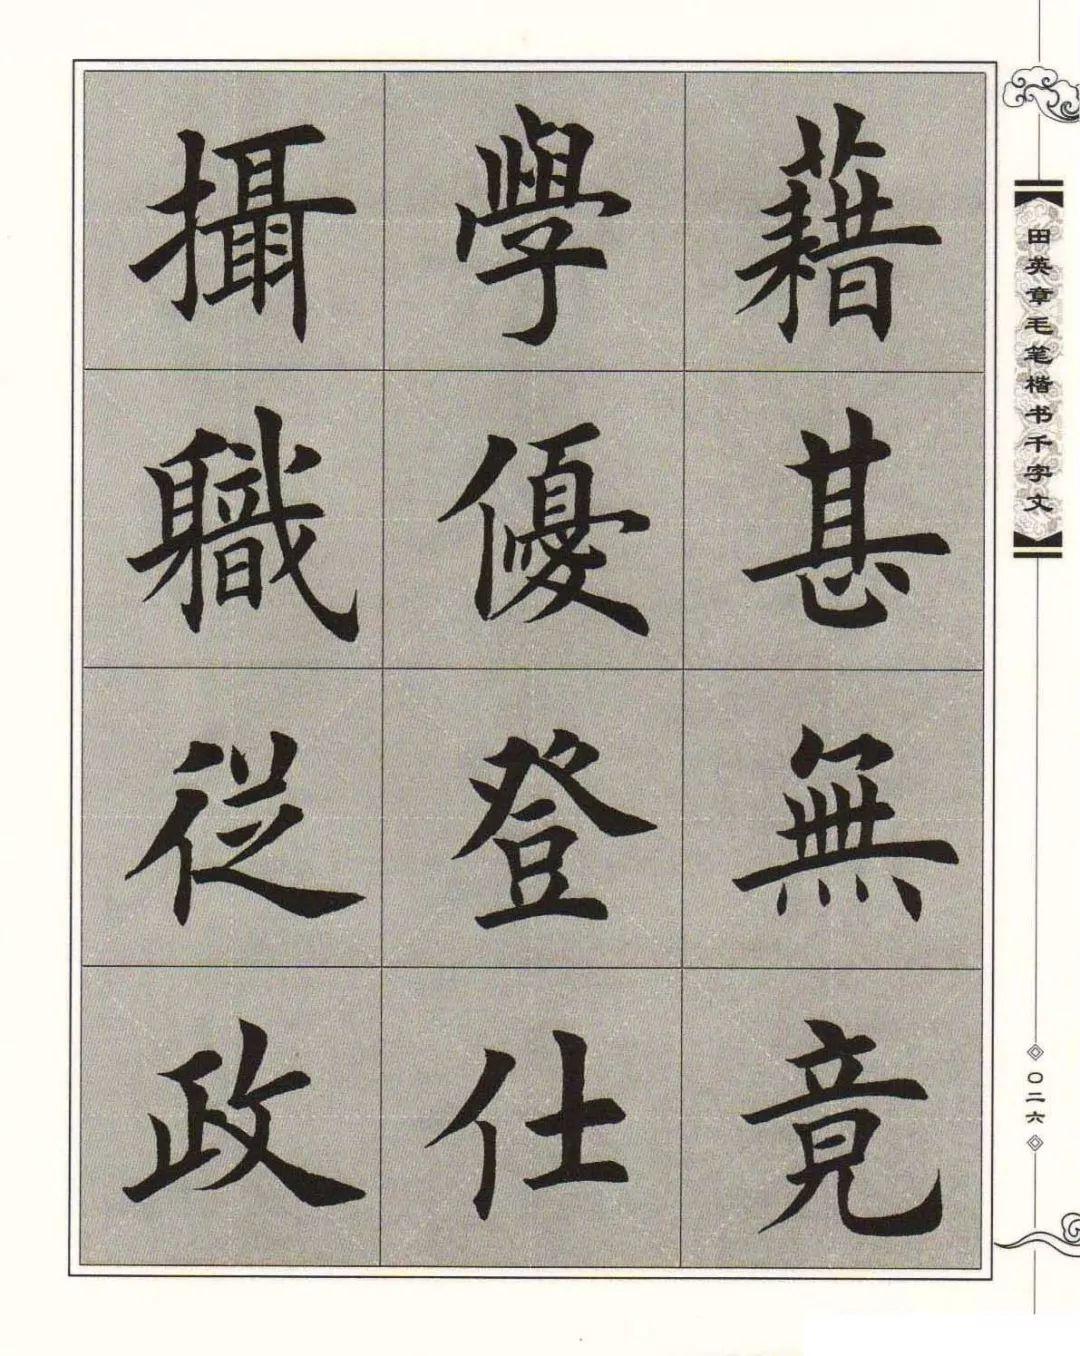 藉甚無竟
學優登仕
攝職従政
田英章毛笔楷书千字文
〇二六